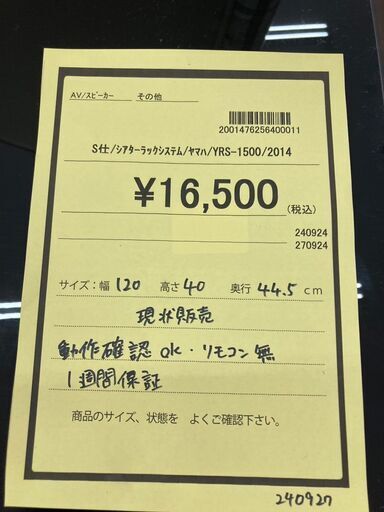 AV/スピーカー　その他
2001476256400011
S仕/シアターラックシステム/ヤマハ/YRS-1500/2014
¥16,500
(税込)
240924
270924
サイズ：幅 120 高さ 40 奥行 44.5 cm
現状販売
動作確認 OK・リモコン無
1週間保証
商品のサイズ、状態を よくご確認下さい。
240927